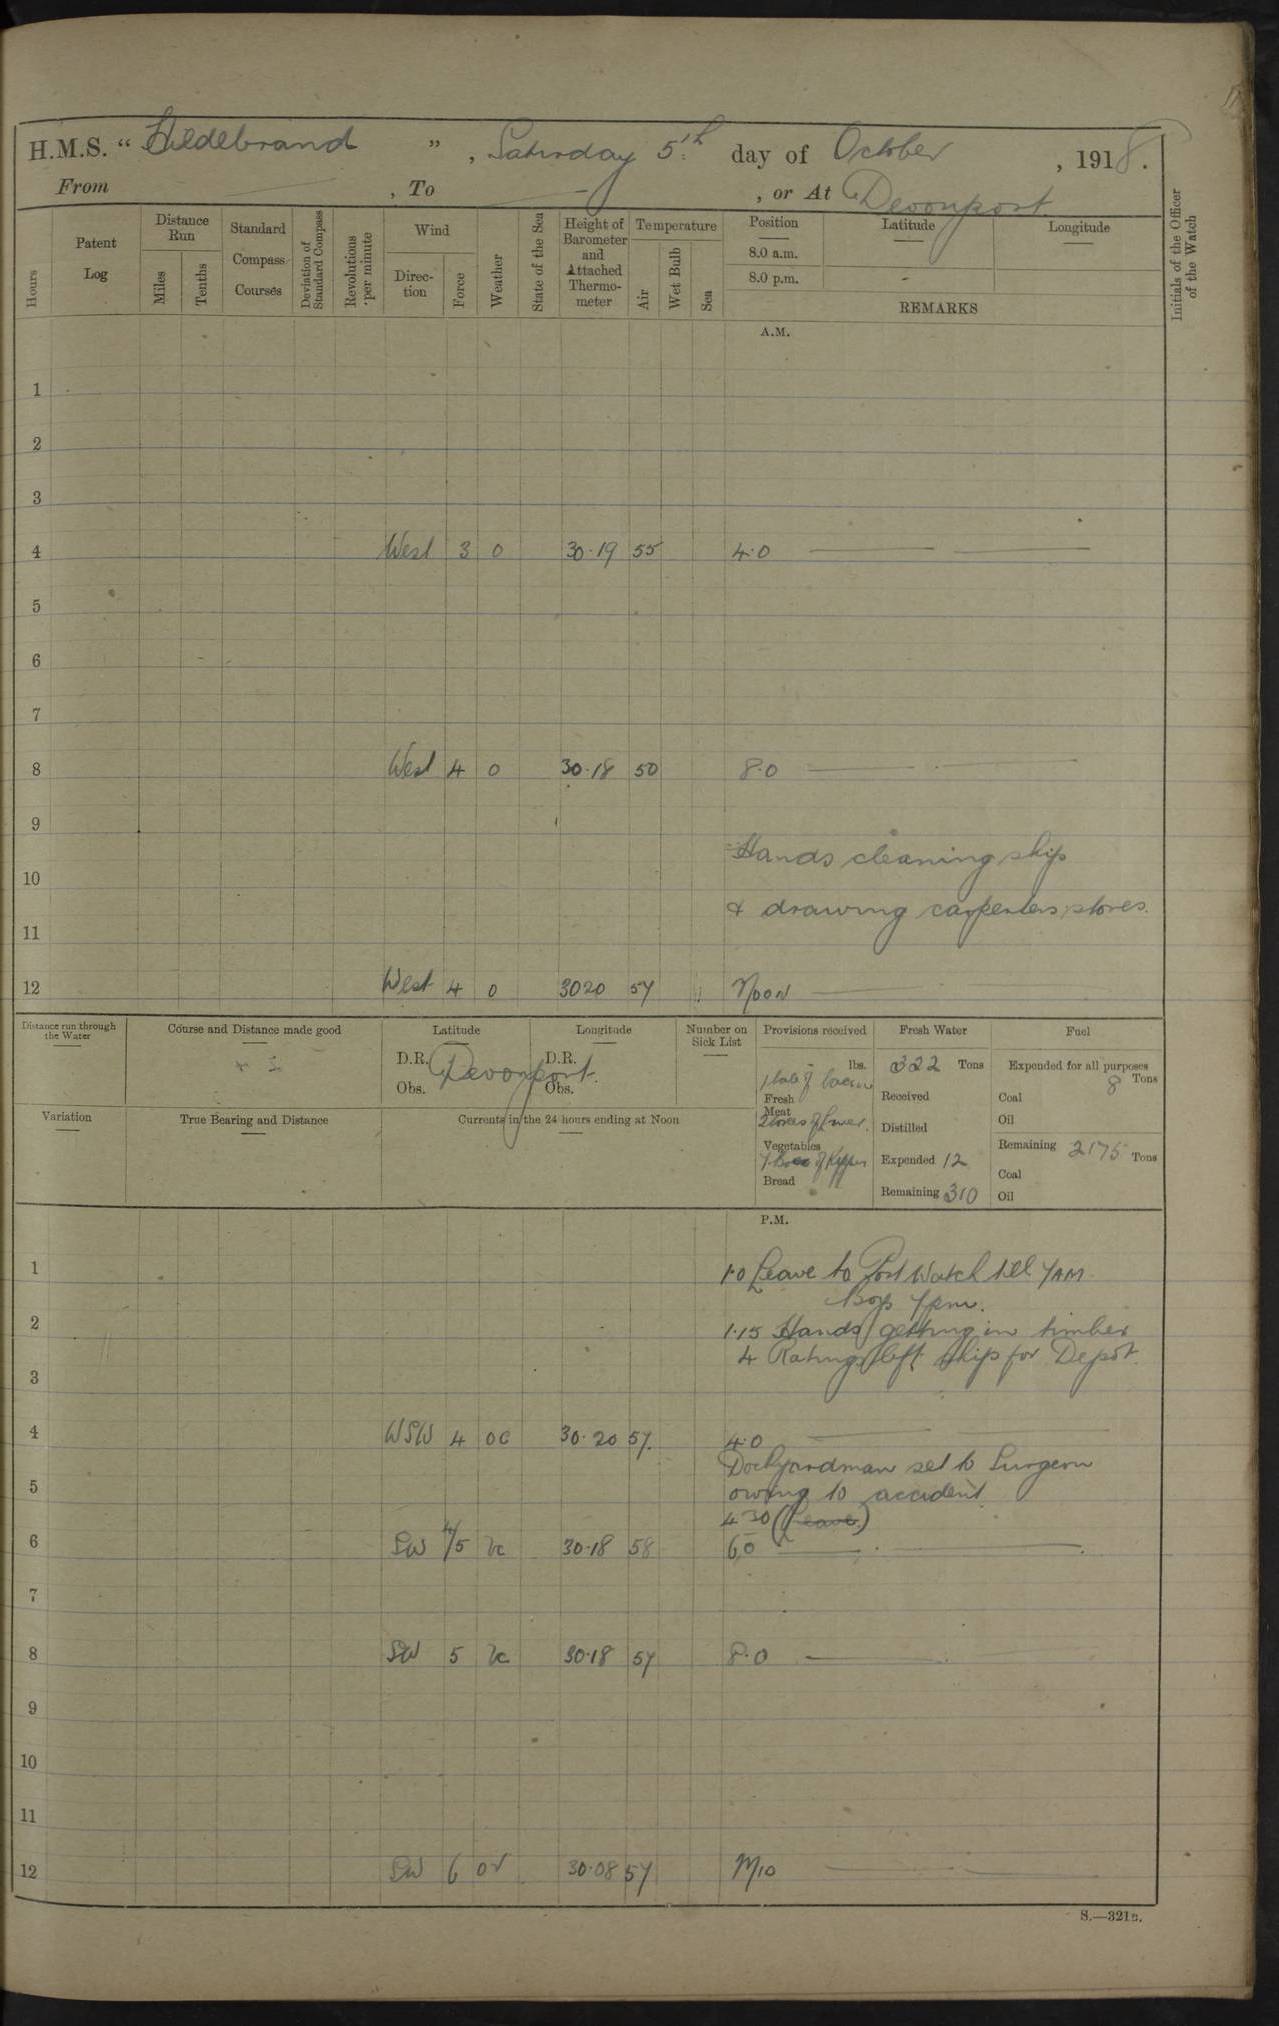 H.M.S. “ Hildebrand ” , Saturday 5th day of October , 1918.
From , To , or At Devonport
Hours
Patent Log
Distance Run
Miles
Tenths
Standard Compass Courses
Deviation of Standard Compass
Revolutions per minute
Wind
Direction
Force
Weather
State of the Sea
Height of Barometer and Attached Thermometer
Temperature
Air
Wet Bulb
Sea
Position Latitude Longitude
8.0 a.m.
8.0 p.m.
REMARKS
Initials of the Officer of the Watch
A.M.
1
2
3
4 West 3 0 30.19 55 4.0
5
6
7
8 West 4 0 30.18 50 8.0
9
Hands cleaning ship
10
& drawing carpenters stores.
11
12 West 4 0 3020 57 Noon
Distance run through the Water
Course and Distance made good
Latitude
D.R.
Obs.
Longitude
D.R.
Obs.
Devonport.
Number on Sick List
Provisions received
lbs.
Fresh Meat
Vegetables
Bread
Fresh Water
322 Tons
Received
Distilled
Expended 12
Remaining 310
Fuel
Expended for all purposes
8 Tons
Coal
Oil
Remaining 2175 Tons
Coal
Oil
Variation
True Bearing and Distance
Currents in the 24 hours ending at Noon
P.M.
1 1.0 Leave to Port Watch till 7AM.
Boys 7pm.
2 1.15 Hands getting in timber
4 Ratings left ship for Depot.
3
4 WSW 4 oc 30.20 57. 4.0
Dockyardman set to Surgeon
5 owing to accident.
4 30 (Leave)
6 SW 4/5 bc 30.18 58 6.0
7
8 SW 5 bc 30.18 57 8.0
9
10
11
12 SW 6 or 30.08 57 Mid
S.—321B.